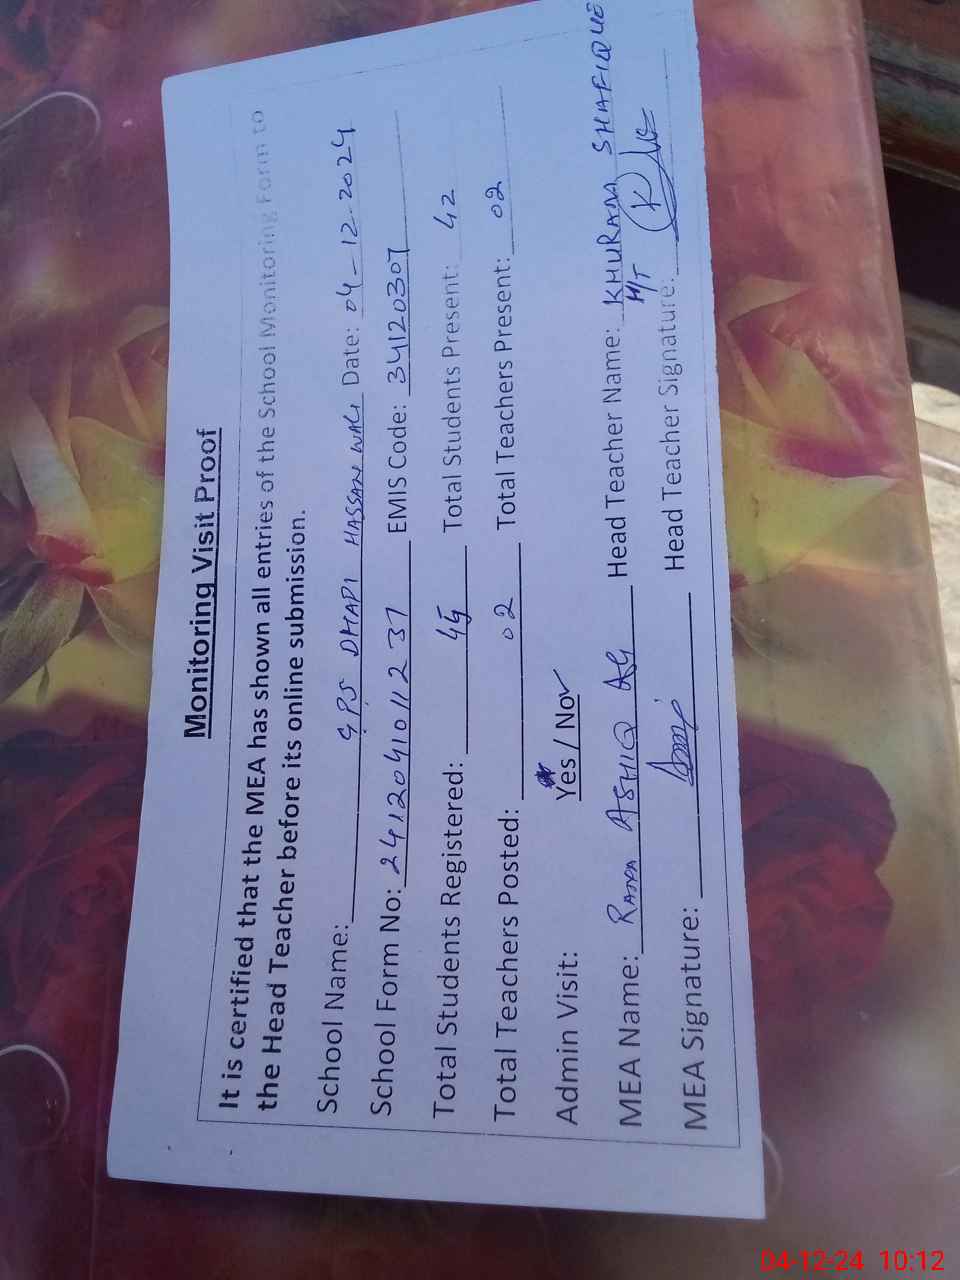 Monitoring Visit Proof
It is certified that the MEA has shown all entries of the School Monitoring Form to
the Head Teacher before its online submission.
School Name: GPS DHAPI HASSAN WALI Date: 04-12-2024
School Form No: 2412041011237 EMIS Code: 34120307
Total Students Registered: 45 Total Students Present: 42
Total Teachers Posted: 02 Total Teachers Present: 02
Admin Visit: Yes / No✓
MEA Name: RANA ASHIQ Ali Head Teacher Name: KHURAM SHAFIQUE
H/T
MEA Signature: Head Teacher Signature:
04-12-24 10:12